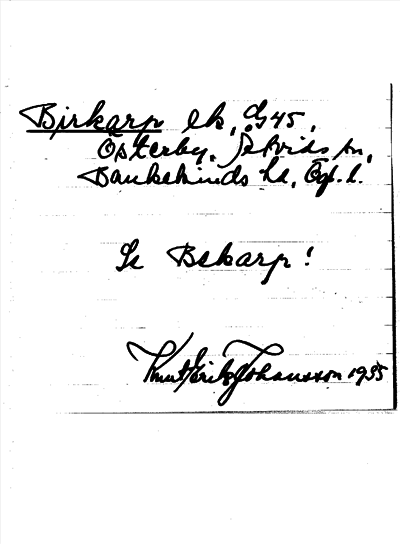 Birkarp ek, G45,
Österby, Åtvids sn,
Bankekinds hd, Ög. l.
Se Bskarp!
Knut Erik Johansson 1935